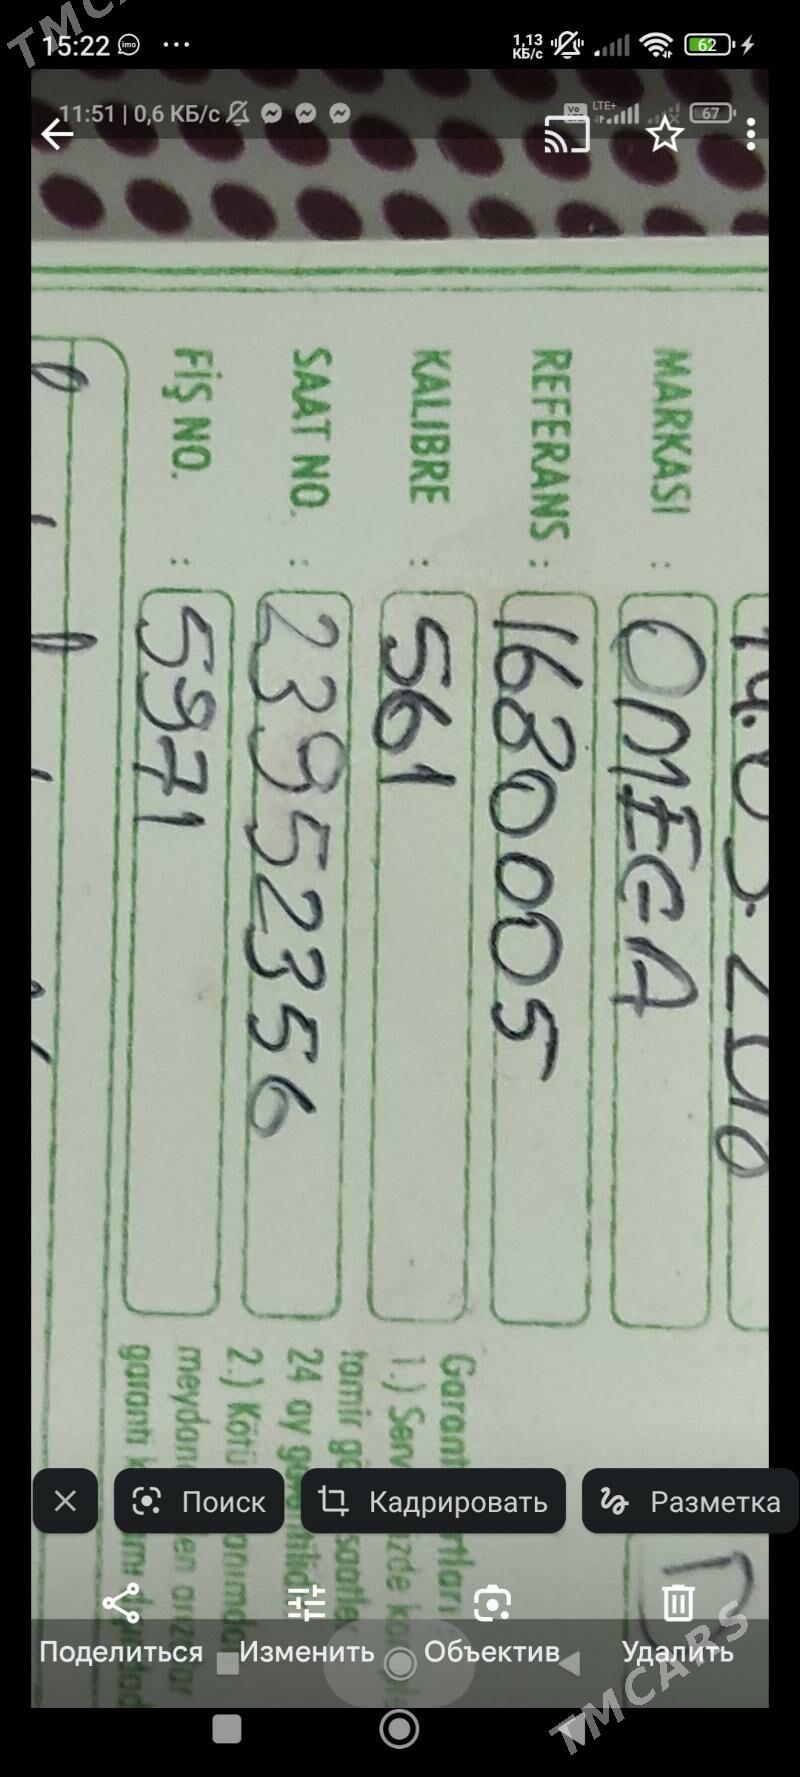 TMCARS
15:22 imo ...
1,13 КБ/с 62
11:51 | 0,6 КБ/с Vo LTE+ 67
MARKASI : OMEGA
REFERANS : 1680005
KALIBRE : 561
SAAT NO. : 23952356
FİŞ NO. : 5971
1.) Serv
24 ay
2.) Kötü
garanti
Поиск
Кадрировать
Разметка
Поделиться
Изменить
Объектив
Удалить
TMCARS